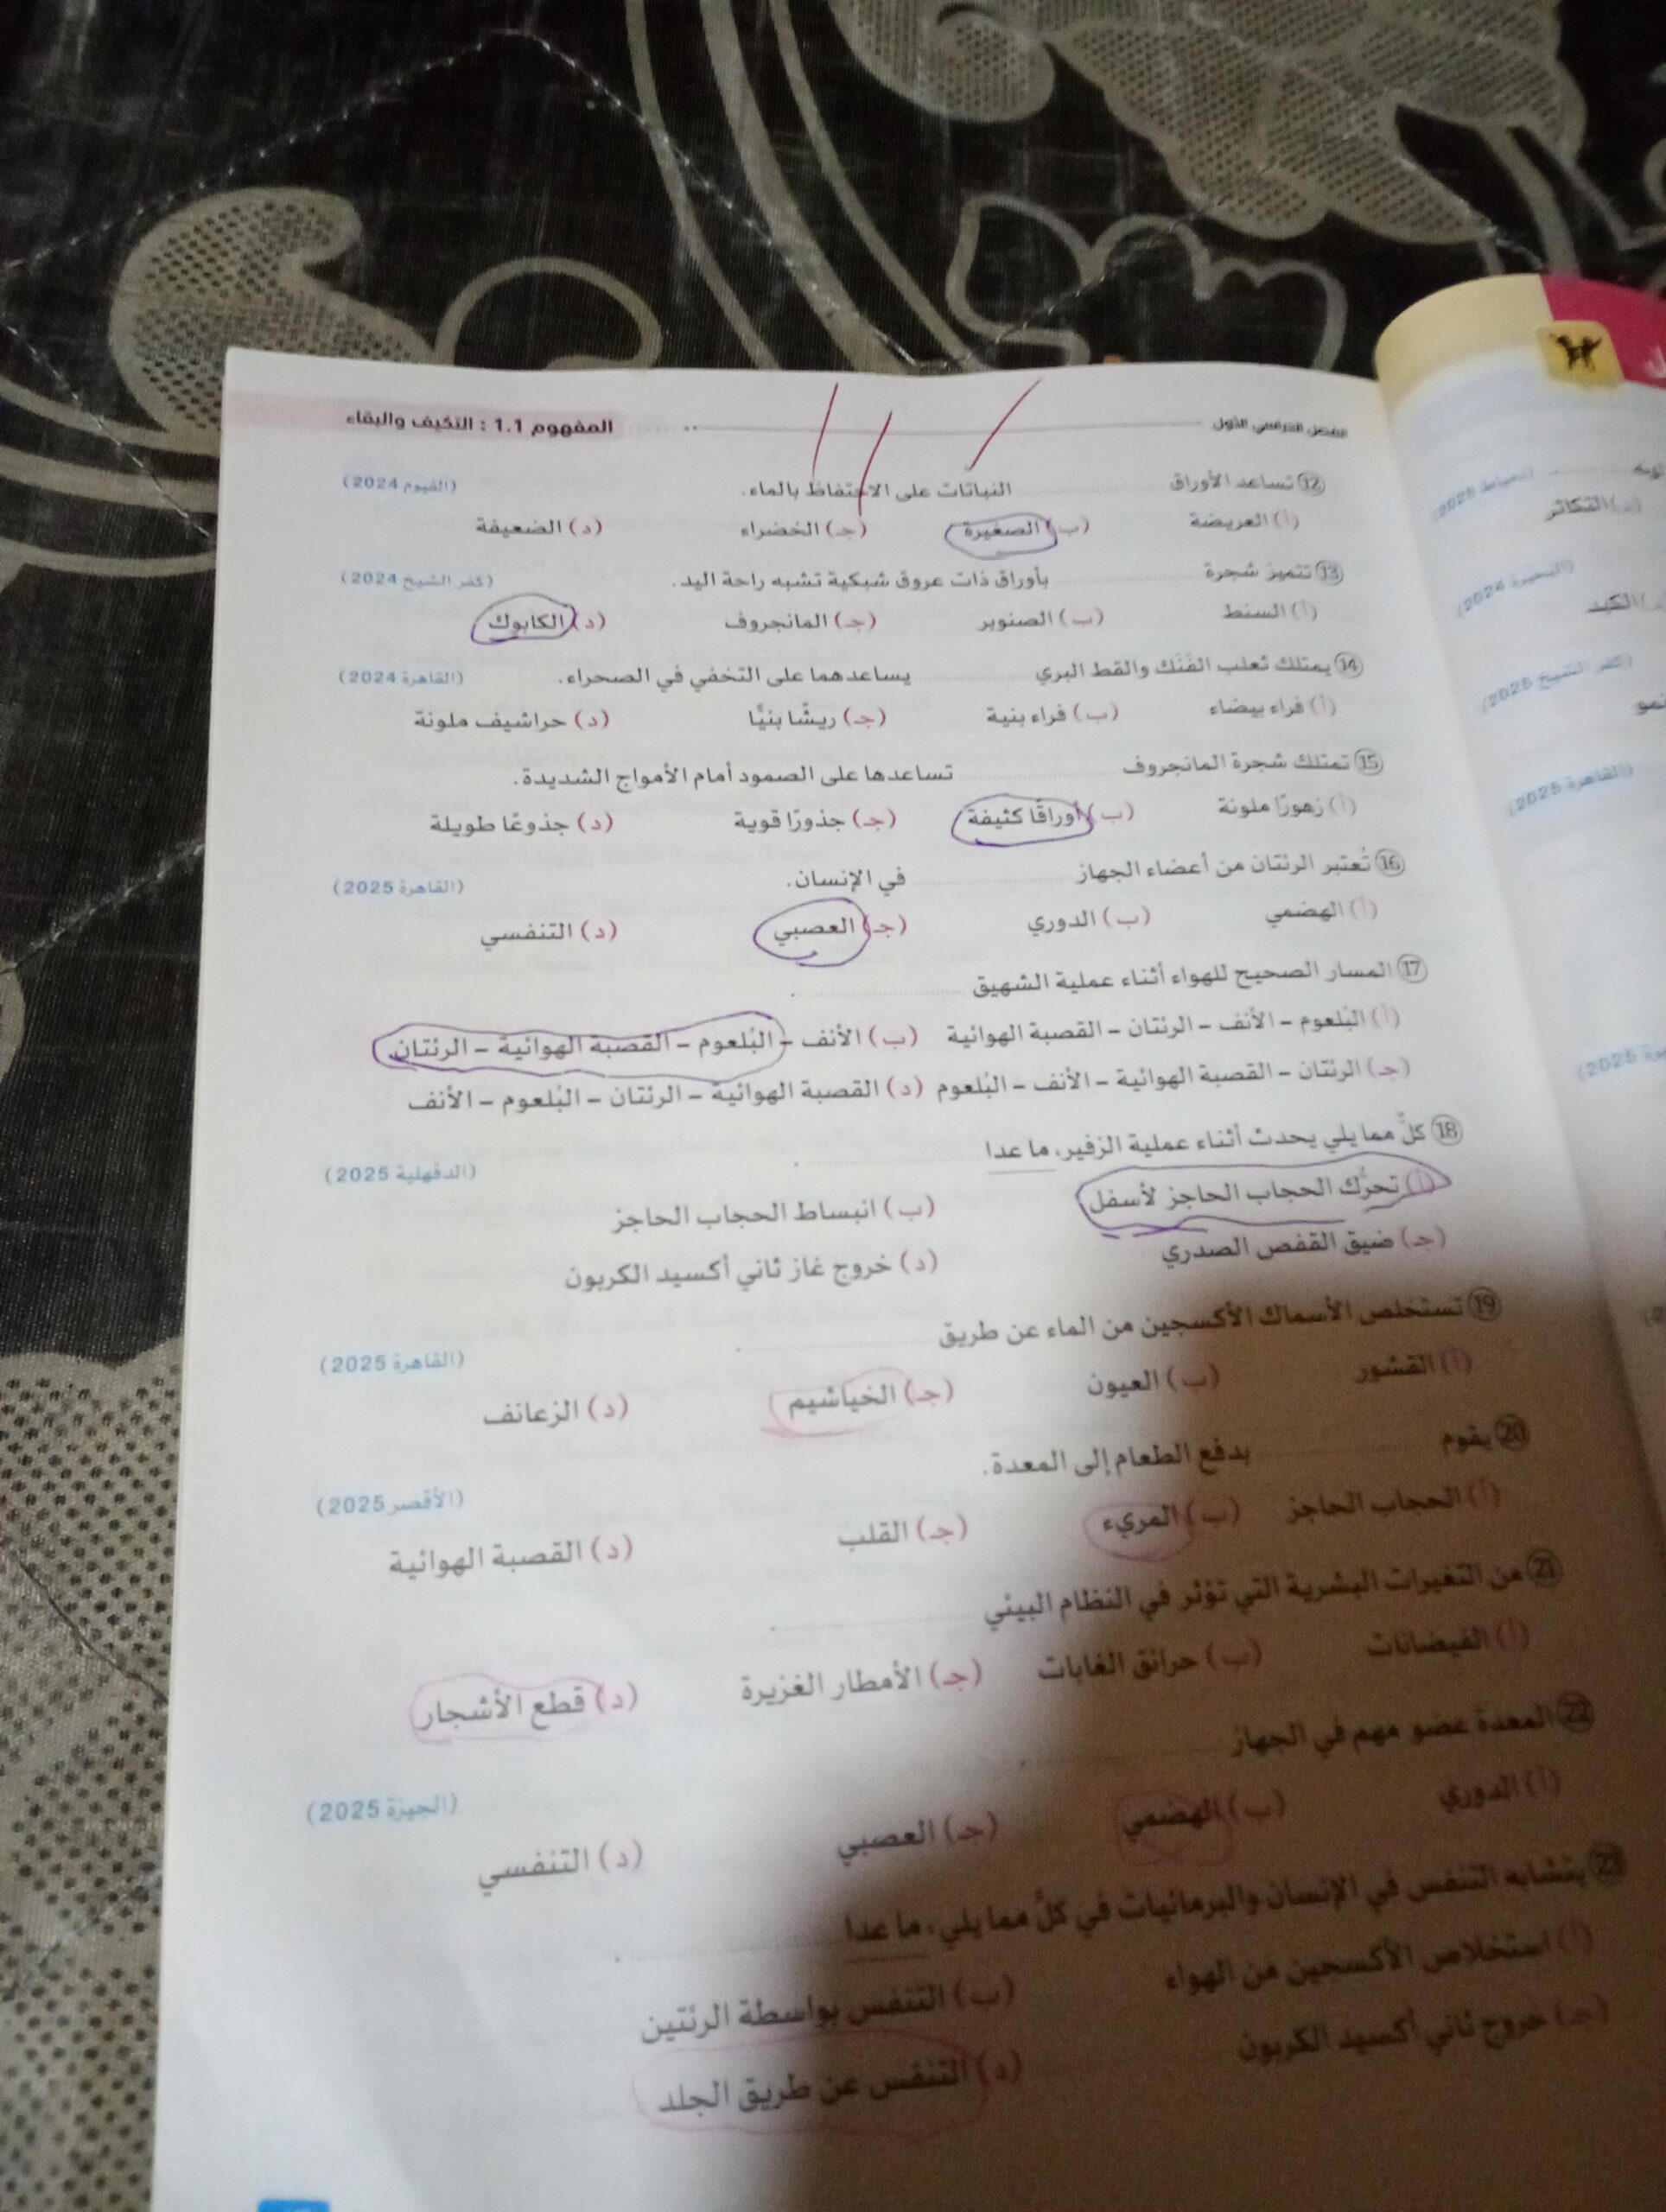 الفصل الدراسي الأول
المفهوم 1.1 : التكيف والبقاء
12 تساعد الأوراق ........ النباتات على الاحتفاظ بالماء. (الفيوم 2024)
(أ) العريضة (ب) الصغيرة (جـ) الخضراء (د) الضعيفة
13 تتميز شجرة ........ بأوراق ذات عروق شبكية تشبه راحة اليد. (كفر الشيخ 2024)
(أ) السنط (ب) الصنوبر (جـ) المانجروف (د) الكابوك
14 يمتلك ثعلب الفَنَك والقط البري ........ يساعدهما على التخفي في الصحراء. (القاهرة 2024)
(أ) فراء بيضاء (ب) فراء بنية (جـ) ريشًا بنيًّا (د) حراشيف ملونة
15 تمتلك شجرة المانجروف ........ تساعدها على الصمود أمام الأمواج الشديدة.
(أ) زهورًا ملونة (ب) أوراقًا كثيفة (جـ) جذورًا قوية (د) جذوعًا طويلة
16 تُعتبر الرئتان من أعضاء الجهاز ........ في الإنسان. (القاهرة 2025)
(أ) الهضمي (ب) الدوري (جـ) العصبي (د) التنفسي
17 المسار الصحيح للهواء أثناء عملية الشهيق ........ .
(أ) البُلعوم – الأنف – الرئتان – القصبة الهوائية (ب) الأنف – البُلعوم – القصبة الهوائية – الرئتان
(جـ) الرئتان – القصبة الهوائية – الأنف – البُلعوم (د) القصبة الهوائية – الرئتان – البُلعوم – الأنف
18 كلٌّ مما يلي يحدث أثناء عملية الزفير، ما عدا ........ . (الدقهلية 2025)
(أ) تحرُّك الحجاب الحاجز لأسفل (ب) انبساط الحجاب الحاجز
(جـ) ضيق القفص الصدري (د) خروج غاز ثاني أكسيد الكربون
19 تستخلص الأسماك الأكسجين من الماء عن طريق ........ . (القاهرة 2025)
(أ) القشور (ب) العيون (جـ) الخياشيم (د) الزعانف
20 يقوم ........ بدفع الطعام إلى المعدة. (الأقصر 2025)
(أ) الحجاب الحاجز (ب) المريء (جـ) القلب (د) القصبة الهوائية
21 من التغيرات البشرية التي تؤثر في النظام البيئي ........ .
(أ) الفيضانات (ب) حرائق الغابات (جـ) الأمطار الغزيرة (د) قطع الأشجار
22 المعدة عضو مهم في الجهاز ........ . (الجيزة 2025)
(أ) الدوري (ب) الهضمي (جـ) العصبي (د) التنفسي
23 يتشابه التنفس في الإنسان والبرمائيات في كلٍّ مما يلي، ما عدا ........ .
(أ) استخلاص الأكسجين من الهواء (ب) التنفس بواسطة الرئتين
(جـ) خروج ثاني أكسيد الكربون (د) التنفس عن طريق الجلد
(دمياط 2025)
(د) التكاثر
(البحيرة 2024)
(د) الكبد
(كفر الشيخ 2025)
(القاهرة 2025)